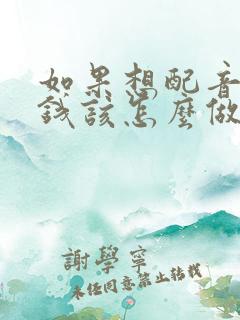 如果想配音
錢該怎麼做
謝學寧
未经同意禁止转载